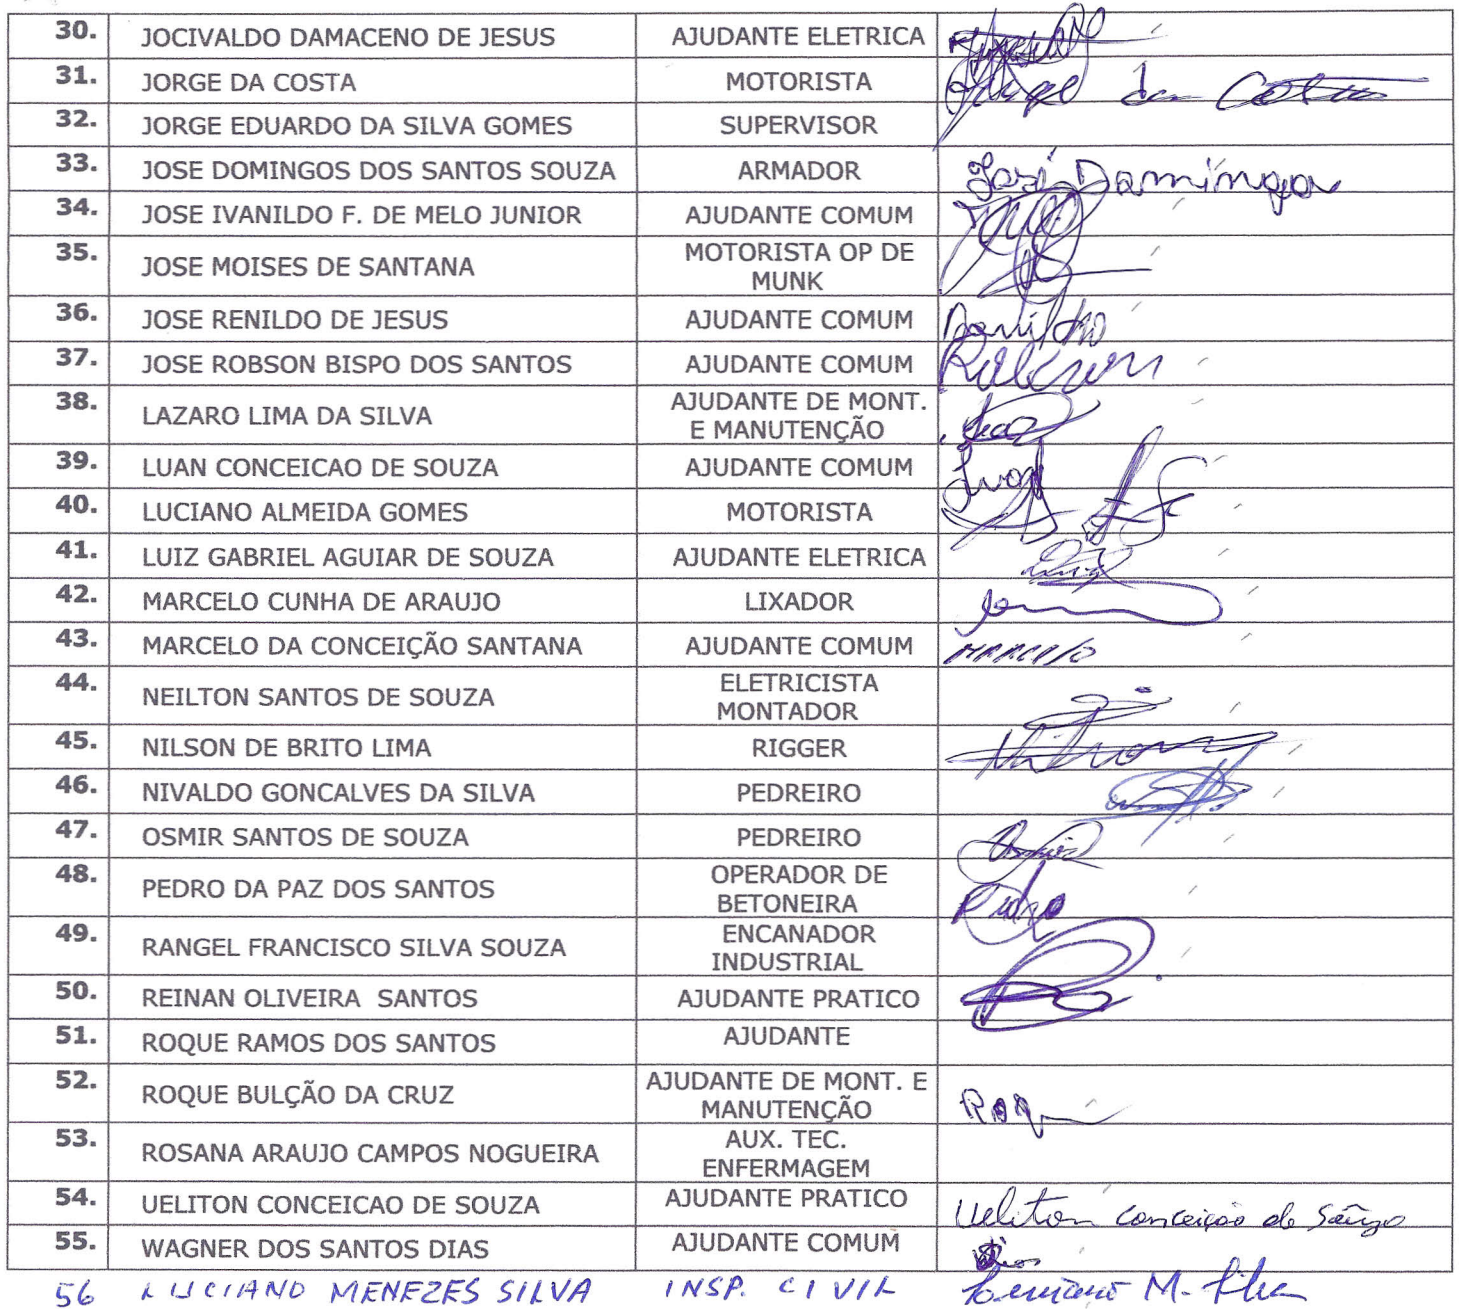 30. JOCIVALDO DAMACENO DE JESUS AJUDANTE ELETRICA
31. JORGE DA COSTA MOTORISTA Jorge da Costa
32. JORGE EDUARDO DA SILVA GOMES SUPERVISOR
33. JOSE DOMINGOS DOS SANTOS SOUZA ARMADOR José Domingos
34. JOSE IVANILDO F. DE MELO JUNIOR AJUDANTE COMUM
35. JOSE MOISES DE SANTANA MOTORISTA OP DE
MUNK
36. JOSE RENILDO DE JESUS AJUDANTE COMUM
37. JOSE ROBSON BISPO DOS SANTOS AJUDANTE COMUM Robson
38. LAZARO LIMA DA SILVA AJUDANTE DE MONT.
E MANUTENÇÃO
39. LUAN CONCEICAO DE SOUZA AJUDANTE COMUM Luan
40. LUCIANO ALMEIDA GOMES MOTORISTA
41. LUIZ GABRIEL AGUIAR DE SOUZA AJUDANTE ELETRICA
42. MARCELO CUNHA DE ARAUJO LIXADOR
43. MARCELO DA CONCEIÇÃO SANTANA AJUDANTE COMUM MARCELO
44. NEILTON SANTOS DE SOUZA ELETRICISTA
MONTADOR
45. NILSON DE BRITO LIMA RIGGER
46. NIVALDO GONCALVES DA SILVA PEDREIRO
47. OSMIR SANTOS DE SOUZA PEDREIRO Osmir
48. PEDRO DA PAZ DOS SANTOS OPERADOR DE
BETONEIRA Pedro
49. RANGEL FRANCISCO SILVA SOUZA ENCANADOR
INDUSTRIAL
50. REINAN OLIVEIRA SANTOS AJUDANTE PRATICO
51. ROQUE RAMOS DOS SANTOS AJUDANTE
52. ROQUE BULÇÃO DA CRUZ AJUDANTE DE MONT. E
MANUTENÇÃO Roqu
53. ROSANA ARAUJO CAMPOS NOGUEIRA AUX. TEC.
ENFERMAGEM
54. UELITON CONCEICAO DE SOUZA AJUDANTE PRATICO Ueliton Conceição de Souza
55. WAGNER DOS SANTOS DIAS AJUDANTE COMUM Dias
56 LUCIANO MENEZES SILVA INSP. CIVIL Luciano M. Silva